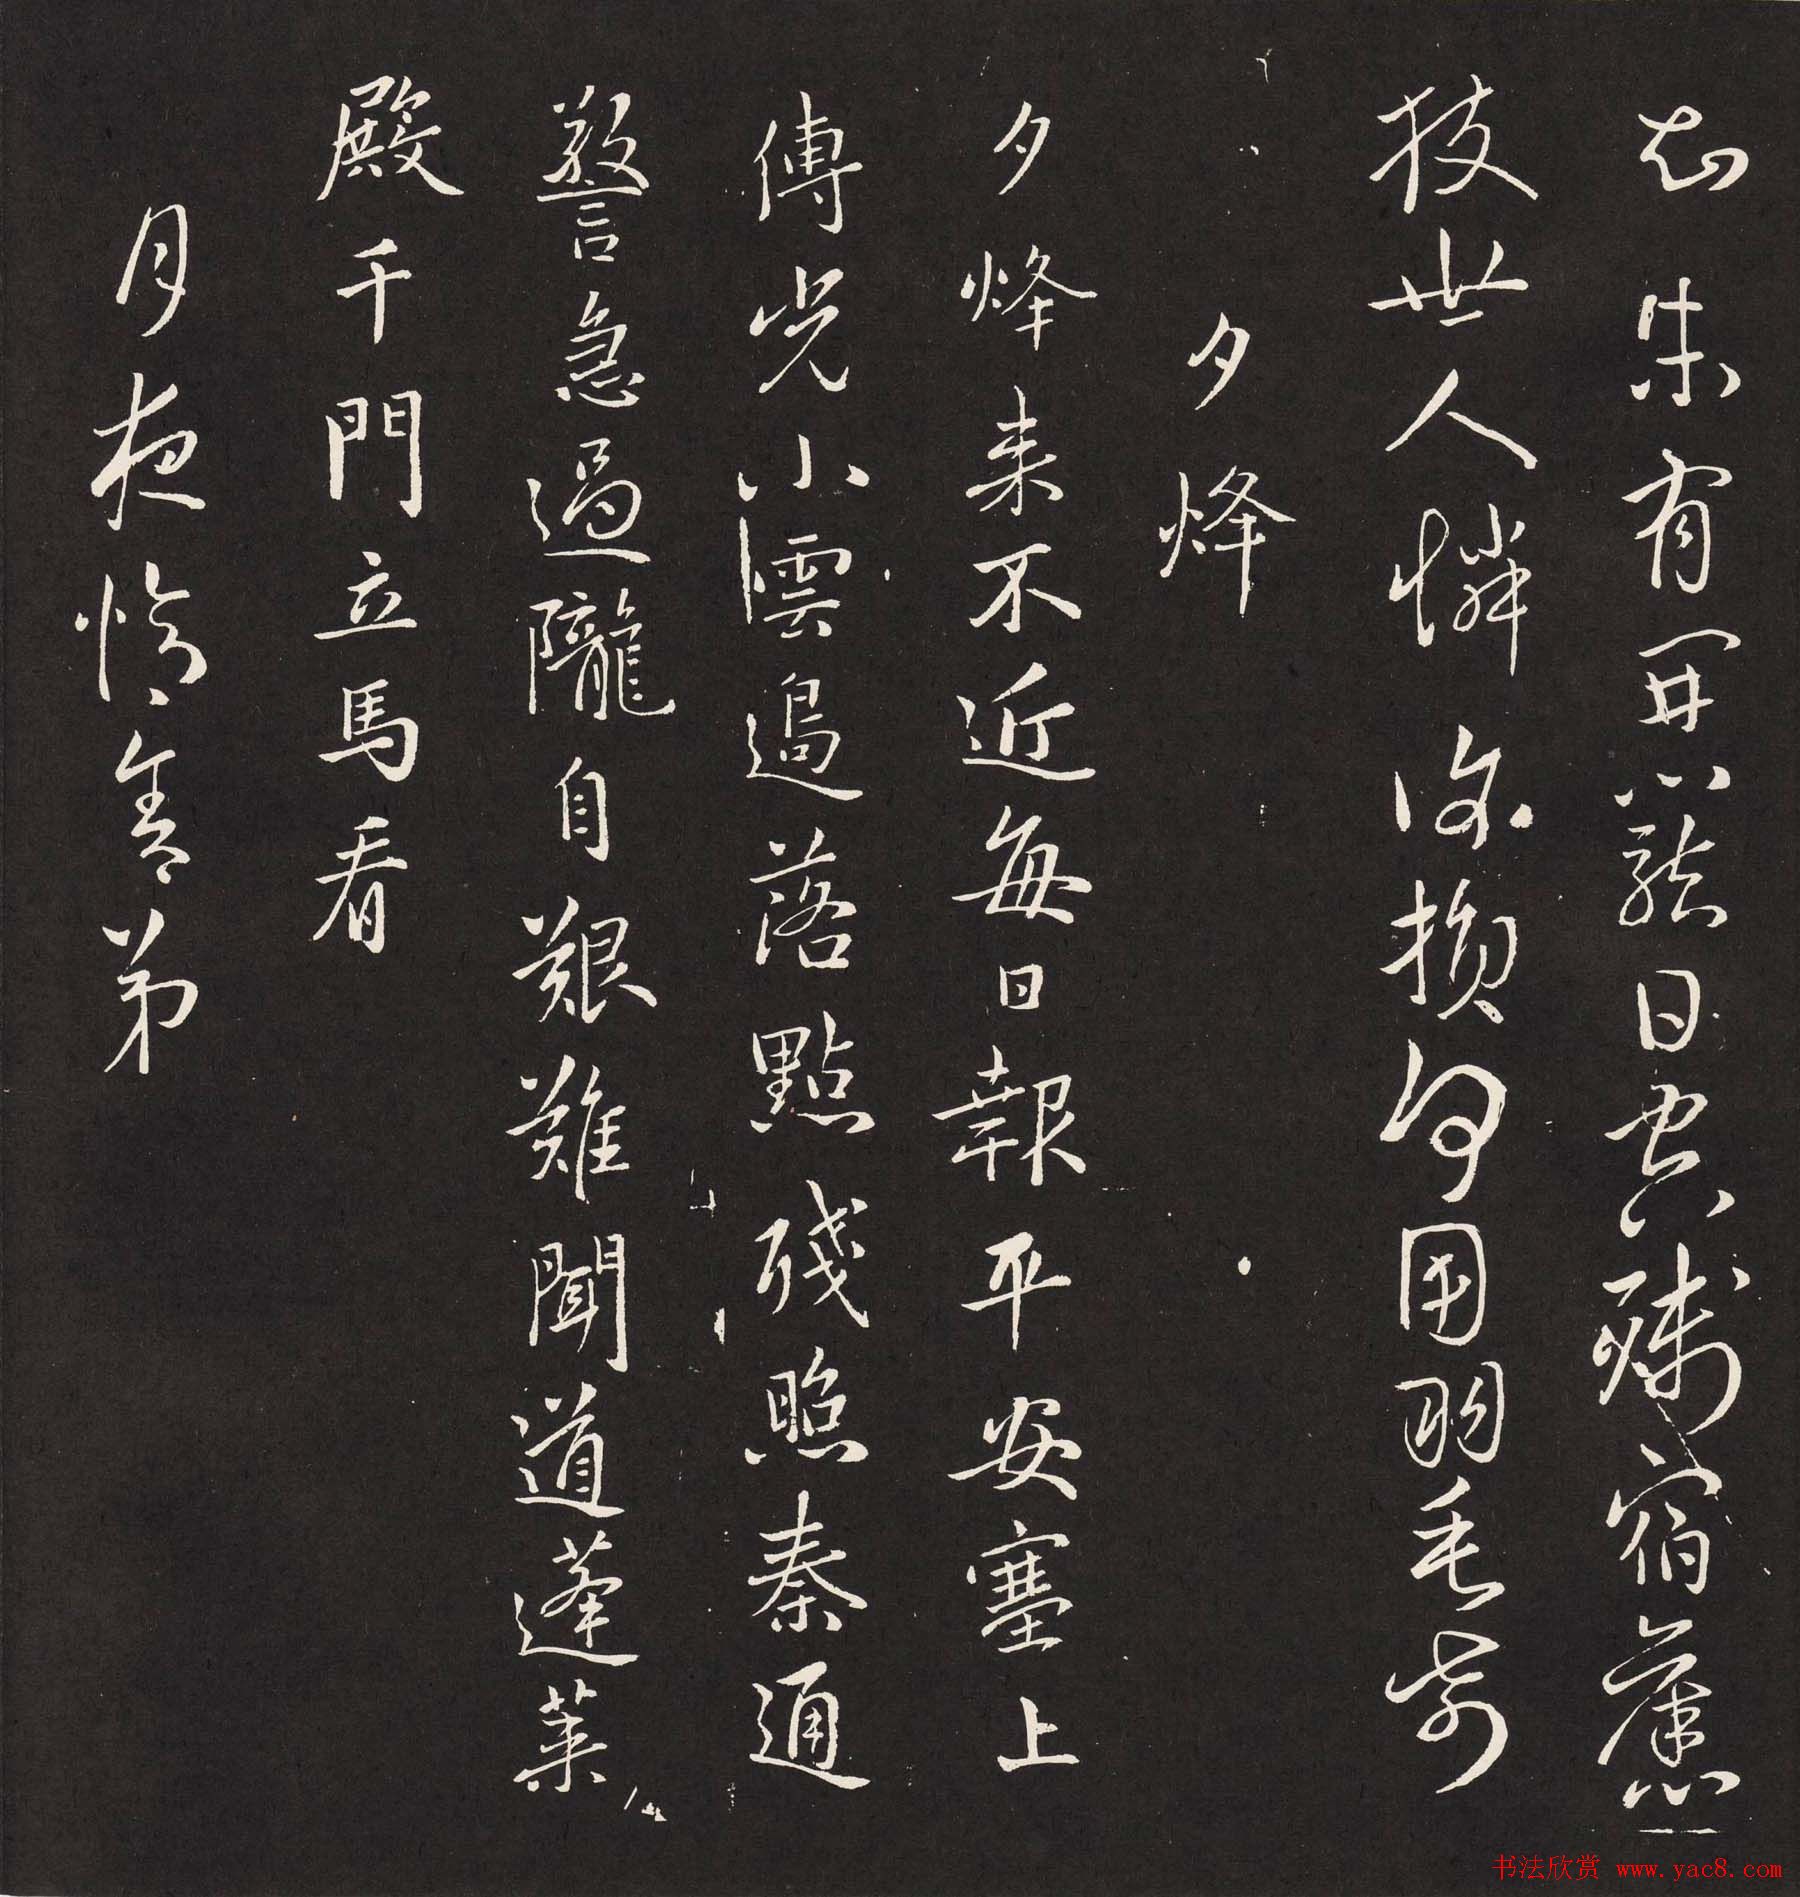 知未有開籠日空殘宿舊
枝世人憐復損何用羽毛奇
夕烽
夕烽来不近每日報平安塞上
傳光小雲邊落點殘照秦通
警急過隴自艱難聞道蓬萊
殿千門立馬看
月夜憶舍弟
书法欣赏 www.yac8.com